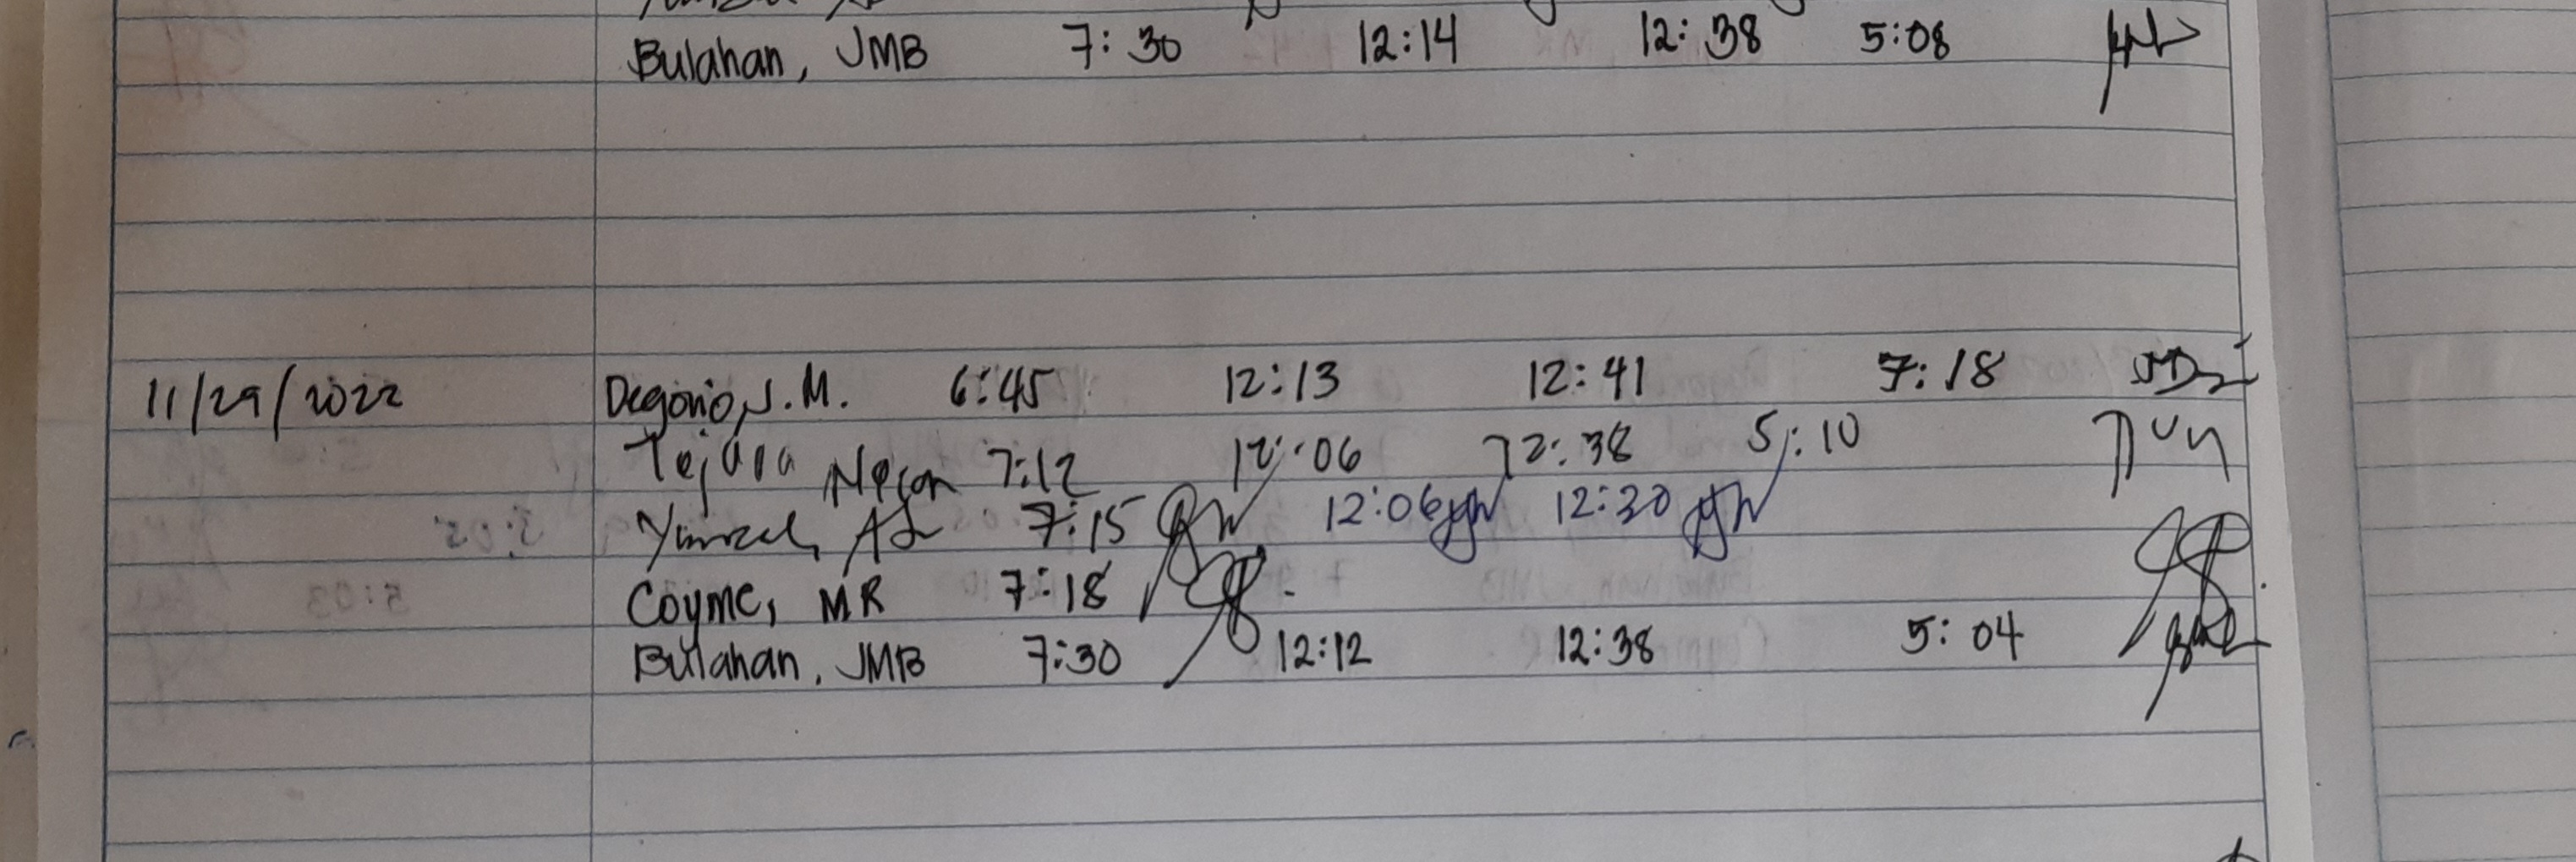 Bulahan, JMB 7:30 12:14 12:38 5:08
11/29/2022 Degorio, J.M. 6:45 12:13 12:41 7:18
7:12 12:06 12:38 5:10
7:15 12:06 12:30
Coyme, MR 7:18
Bulahan, JMB 7:30 12:12 12:38 5:04